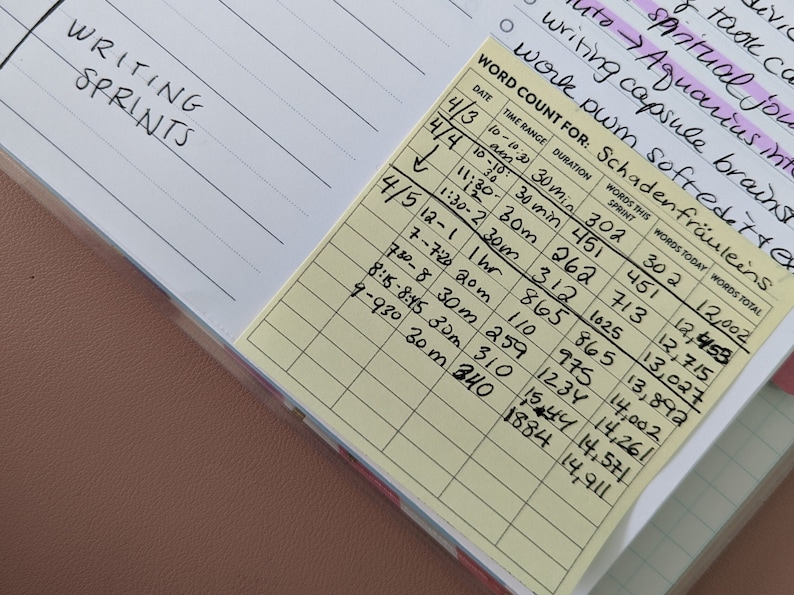 WRITING
SPRINTS
took
spiritual
→ Aquarius
writing capsule
work pwm soft
WORD COUNT FOR: Schadenfräuleins
DATE TIME RANGE DURATION WORDS THIS SPRINT WORDS TODAY WORDS TOTAL
4/3 10-10:30 am 30 min 302 302 12,002
4/4 10-10:30 30 min 451 451 12,453
↓ 11:30-12 30m 262 713 12,715
1:30-2 30m 312 1025 13,027
4/5 12-1 1 hr 865 865 13,892
7-7:20 20m 110 975 14,002
7:30-8 30m 259 1234 14,261
8:15-8:45 30m 310 15,44 14,571
9-930 30m 340 1884 14,911